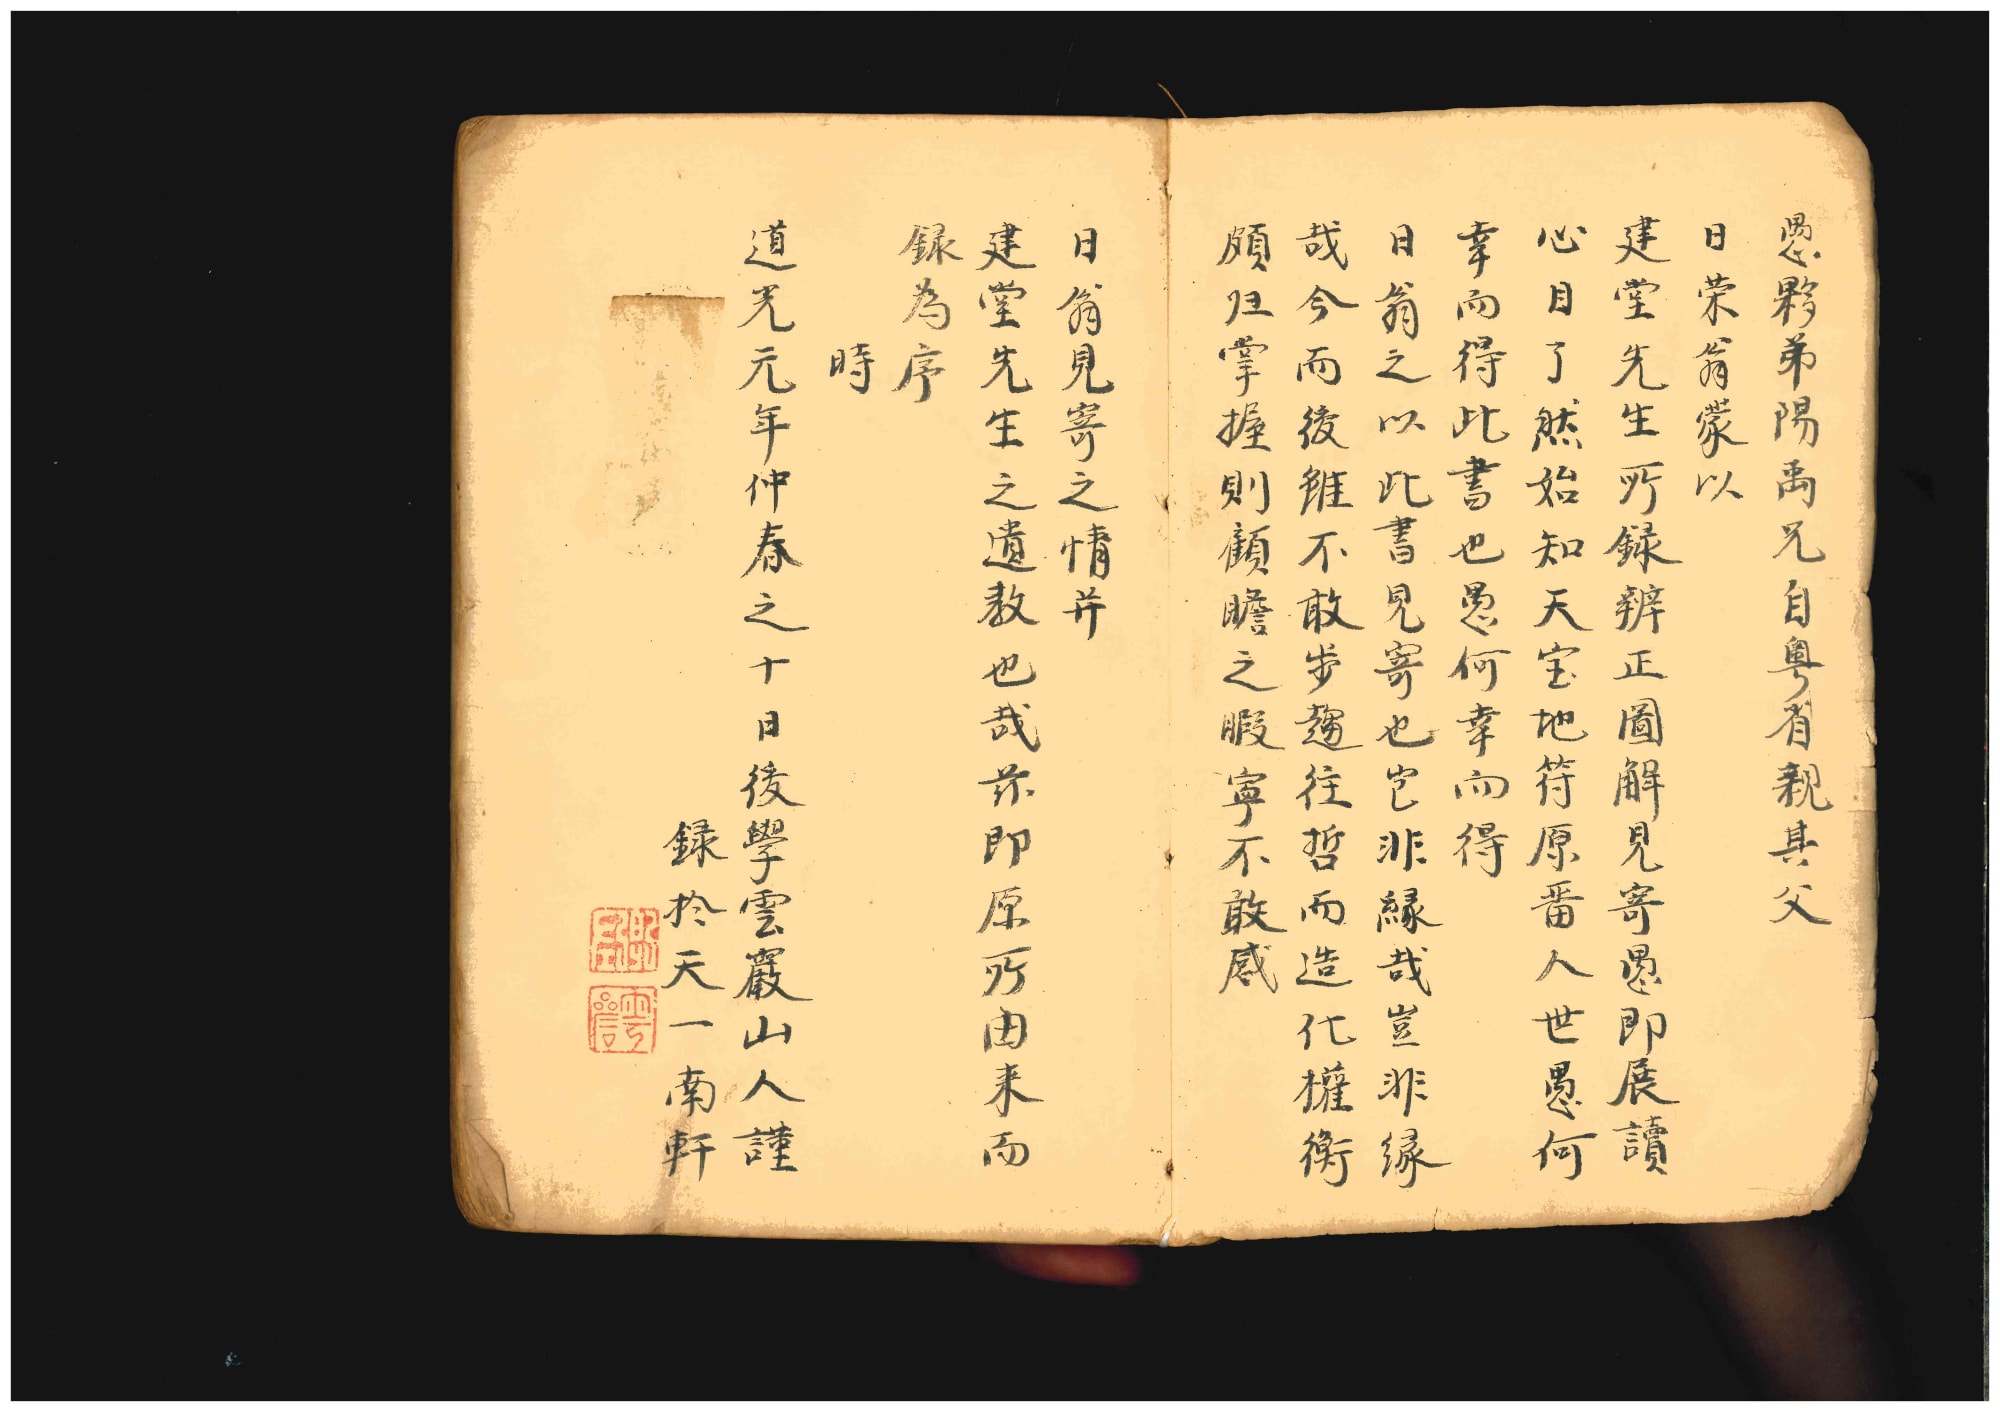 愚夥弟陽禹兄自粵省親其父
日荣翁蒙以
建堂先生所録辨正圖解見寄愚即展讀
心目了然始知天宝地符原畨人世愚何
幸而得此書也愚何幸而得
日翁之以此書見寄也岂非緣哉豈非緣
哉今而後雖不敢步趨往哲而造化權衡
頗归掌握則顧瞻之暇寧不敢感
日翁見寄之情并
建堂先生之遺教也哉茲即原所由来而
録為序
時
道光元年仲春之十日後學雲巖山人謹
録於天一南軒